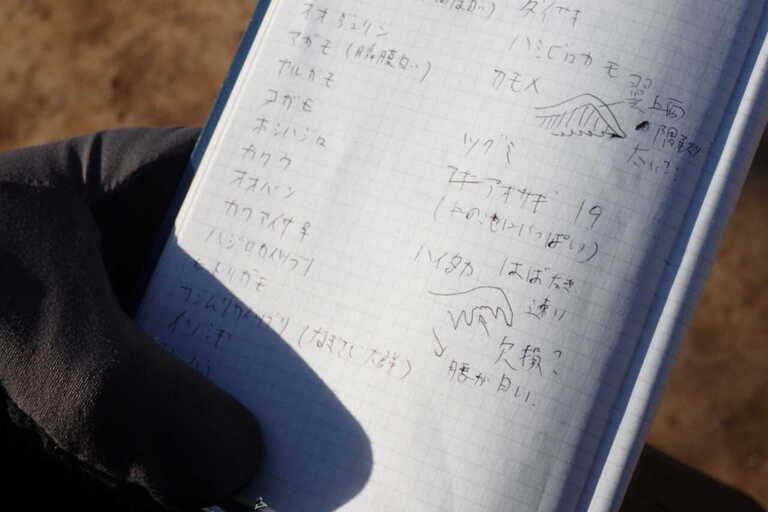 オオジュリン
マガモ (脇腹白い)
カルガモ
コガモ
ホシハジロ
カワウ
オオバン
カワアイサ♀
ハジロカイツブリ
ヒドリガモ
カンムリカイツブリ
イソシギ
ダイサギ
ハシビロガモ
カモメ
翼上面
ツグミ
アオサギ 19
(上の池にいっぱい)
ハイタカ はばたき
速い
欠損?
腰が白い.